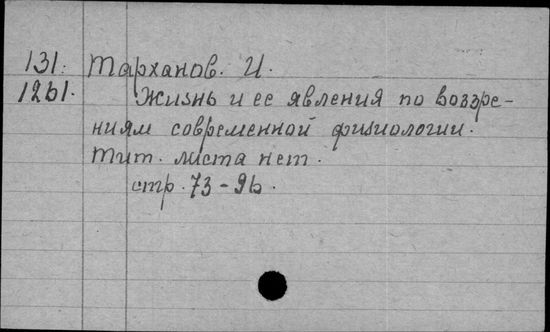 131. Тарханов. И.
1261. Жизнь и ее явления по воззре-
ниям современной физиологии.
Тит. листа нет.
стр. 73-96.